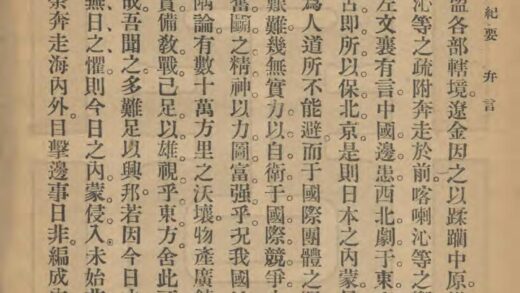 紀要 弁言
盟各部轄境遼金因之以蹂躪中原
沁等之疏附奔走於前喀喇沁等之
左文襄有言中國邊患西北劇于東
古即所以保北京是則日本之內蒙
為人道所不能避而于國際團體之
艱難幾無實力以自衛于國際競爭
奮鬭之精神以力圖富强乎况我國
論有數十萬方里之沃壤。物產廣
備敎戰已足以雄視乎東方舍此
吾聞之多難足以興邦若因今日
無日之懼則今日之內蒙侵入未始
奔走海內外目擊邊事日非編成